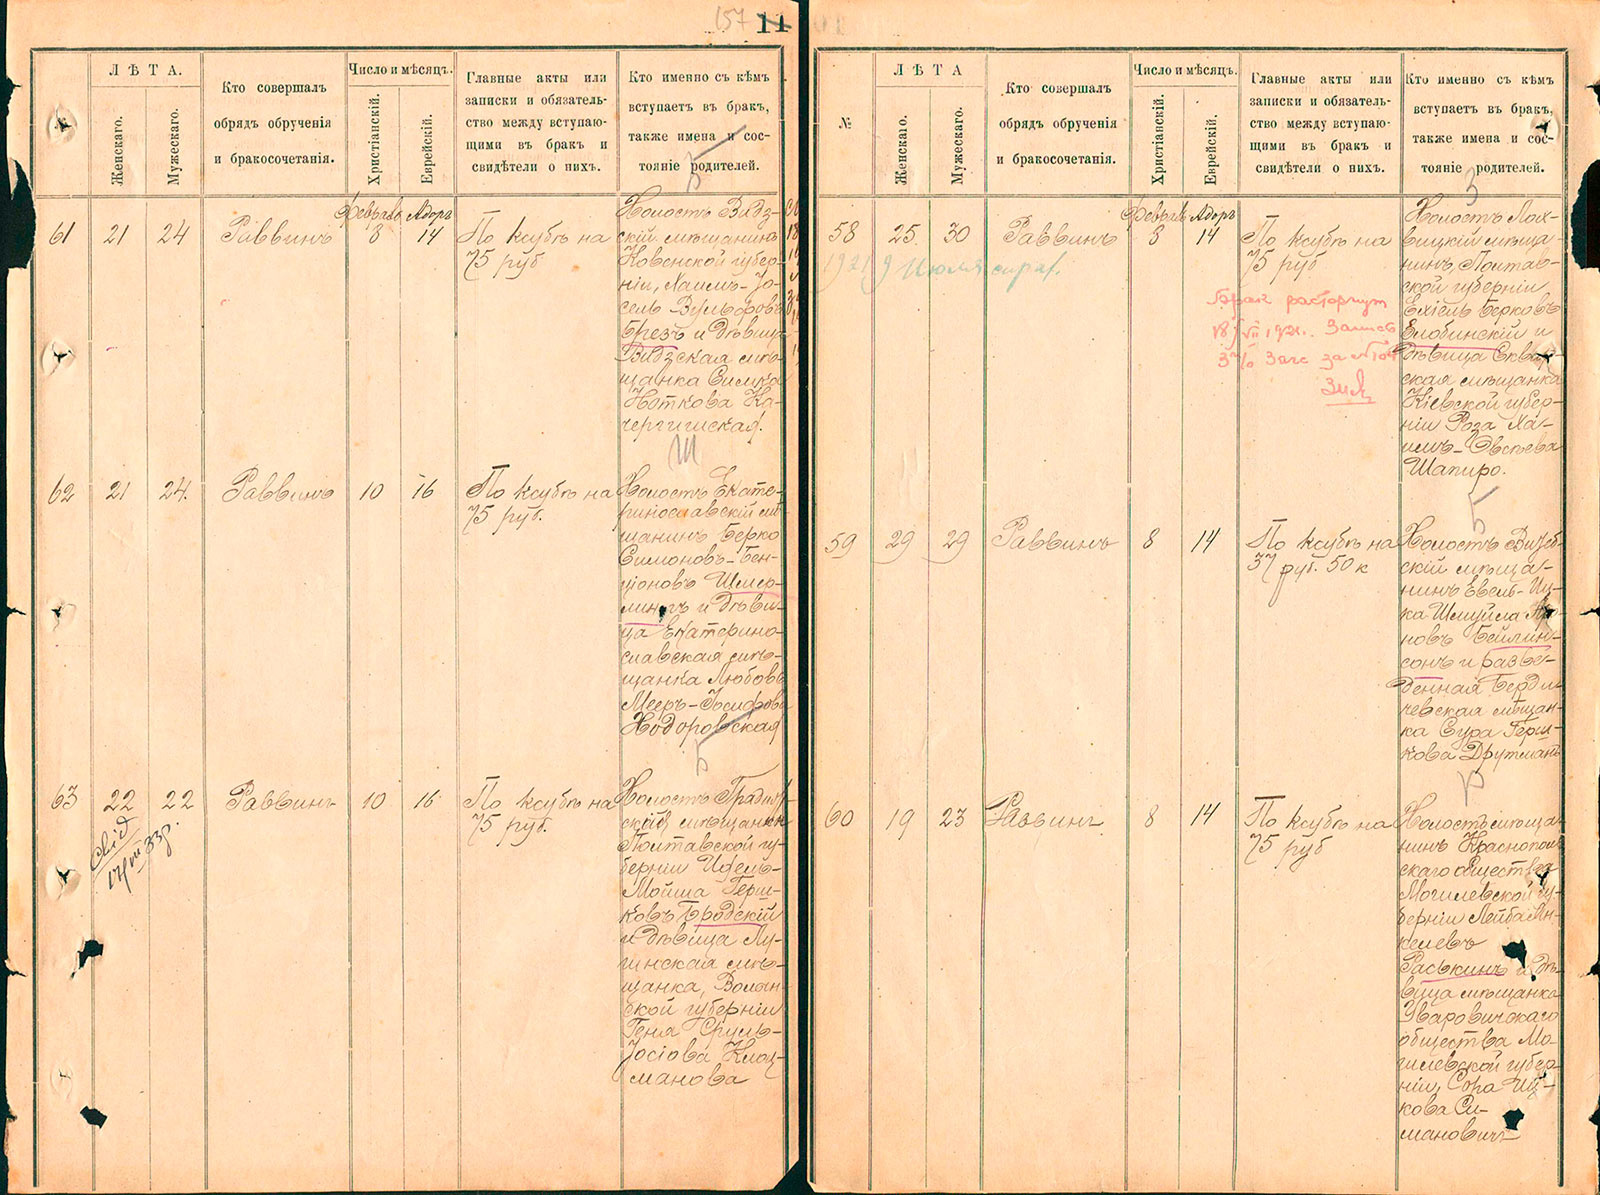 157 11
ЛѢТА.
Женскаго.
Мужескаго.
Кто совершалъ
обрядъ обрученія
и бракосочетанія.
Число и мѣсяцъ.
Христіанскій.
Еврейскій.
Главные акты или
записки и обязатель-
ство между вступаю-
щими въ бракъ и
свидѣтели о нихъ.
Кто именно съ кѣмъ
вступаетъ въ бракъ,
также имена и сос-
тояніе родителей.
Б
61 21 24 Раввинъ
Февраль 8
Адоръ 14
По ксубѣ на
75 руб
Холостъ Видз-
скій мѣщанинъ
Ковенской губер-
ніи, Хаимъ-Іо-
сель Вульфовъ
Брезъ и дѣвица
Видзская мѣ-
щанка Симка
Ноткова Ка-
чергишская.
Ш
62 21 24. Раввинъ 10 16
По ксубѣ на
75 руб.
Холостъ Екате-
ринославскій мѣ-
щанинъ Берко
Симоновъ-Бен-
ціоновъ Шмер-
лингъ и дѣви-
ца Екатерино-
славская мѣ-
щанка Любовь
Мееръ-Іосифова
Ходоровская
Б
63 22 22 Раввинъ 10 16
По ксубѣ на
75 руб.
Холостъ Градиж-
скій мѣщанинъ
Полтавской гу-
берніи Ицель-
Мойша Герш-
ковъ Бродскій
и дѣвица Лу-
гинская мѣ-
щанка, Волын-
ской губерніи
Геня Сруль-
Іосіова Клоц-
манова
№
ЛѢТА
Женскаго.
Мужескаго.
Кто совершалъ
обрядъ обрученія
и бракосочетанія.
Число и мѣсяцъ.
Христіанскій.
Еврейскій.
Главные акты или
записки и обязатель-
ство между вступаю-
щими въ бракъ и
свидѣтели о нихъ.
Кто именно съ кѣмъ
вступаетъ въ бракъ,
также имена и сос-
тояніе родителей.
З
58 25. 30 Раввинъ
Февраль 8
Адоръ 14
По ксубѣ на
75 руб
1921 9 Июля справ.
Брак расторгнут
18/VII 1921. Запись
Загс за №
Холостъ Лох-
вицкій мѣща-
нинъ, Полтав-
ской губерніи
Ехіель Берковъ
Злобинскій и
дѣвица Сквир-
ская мѣщанка
Кіевской губер-
ніи Роза Ха-
имъ-Овсѣева
Шапиро.
Б
59 29 29 Раввинъ 8 14
По ксубѣ на
37 руб. 50 к
Холостъ Витеб-
скій мѣща-
нинъ Евель-Иц-
ка Шмуйла Аро-
новъ Бейлин-
сонъ и разве-
денная Берди-
чевская мѣщан-
ка Сура Герш-
кова Друтманъ
Р
60 19 23 Раввинъ 8 14
По ксубѣ на
75 руб
Холостъ мѣща-
нинъ Краснополь-
скаго общества
Могилевской гу-
берніи Лейба Ян-
келевъ
Раськинъ и дѣ-
вица мѣщанка
Уваровичскаго
общества Мо-
гилевской губер-
ніи, Сора Иц-
кова Си-
мановичъ